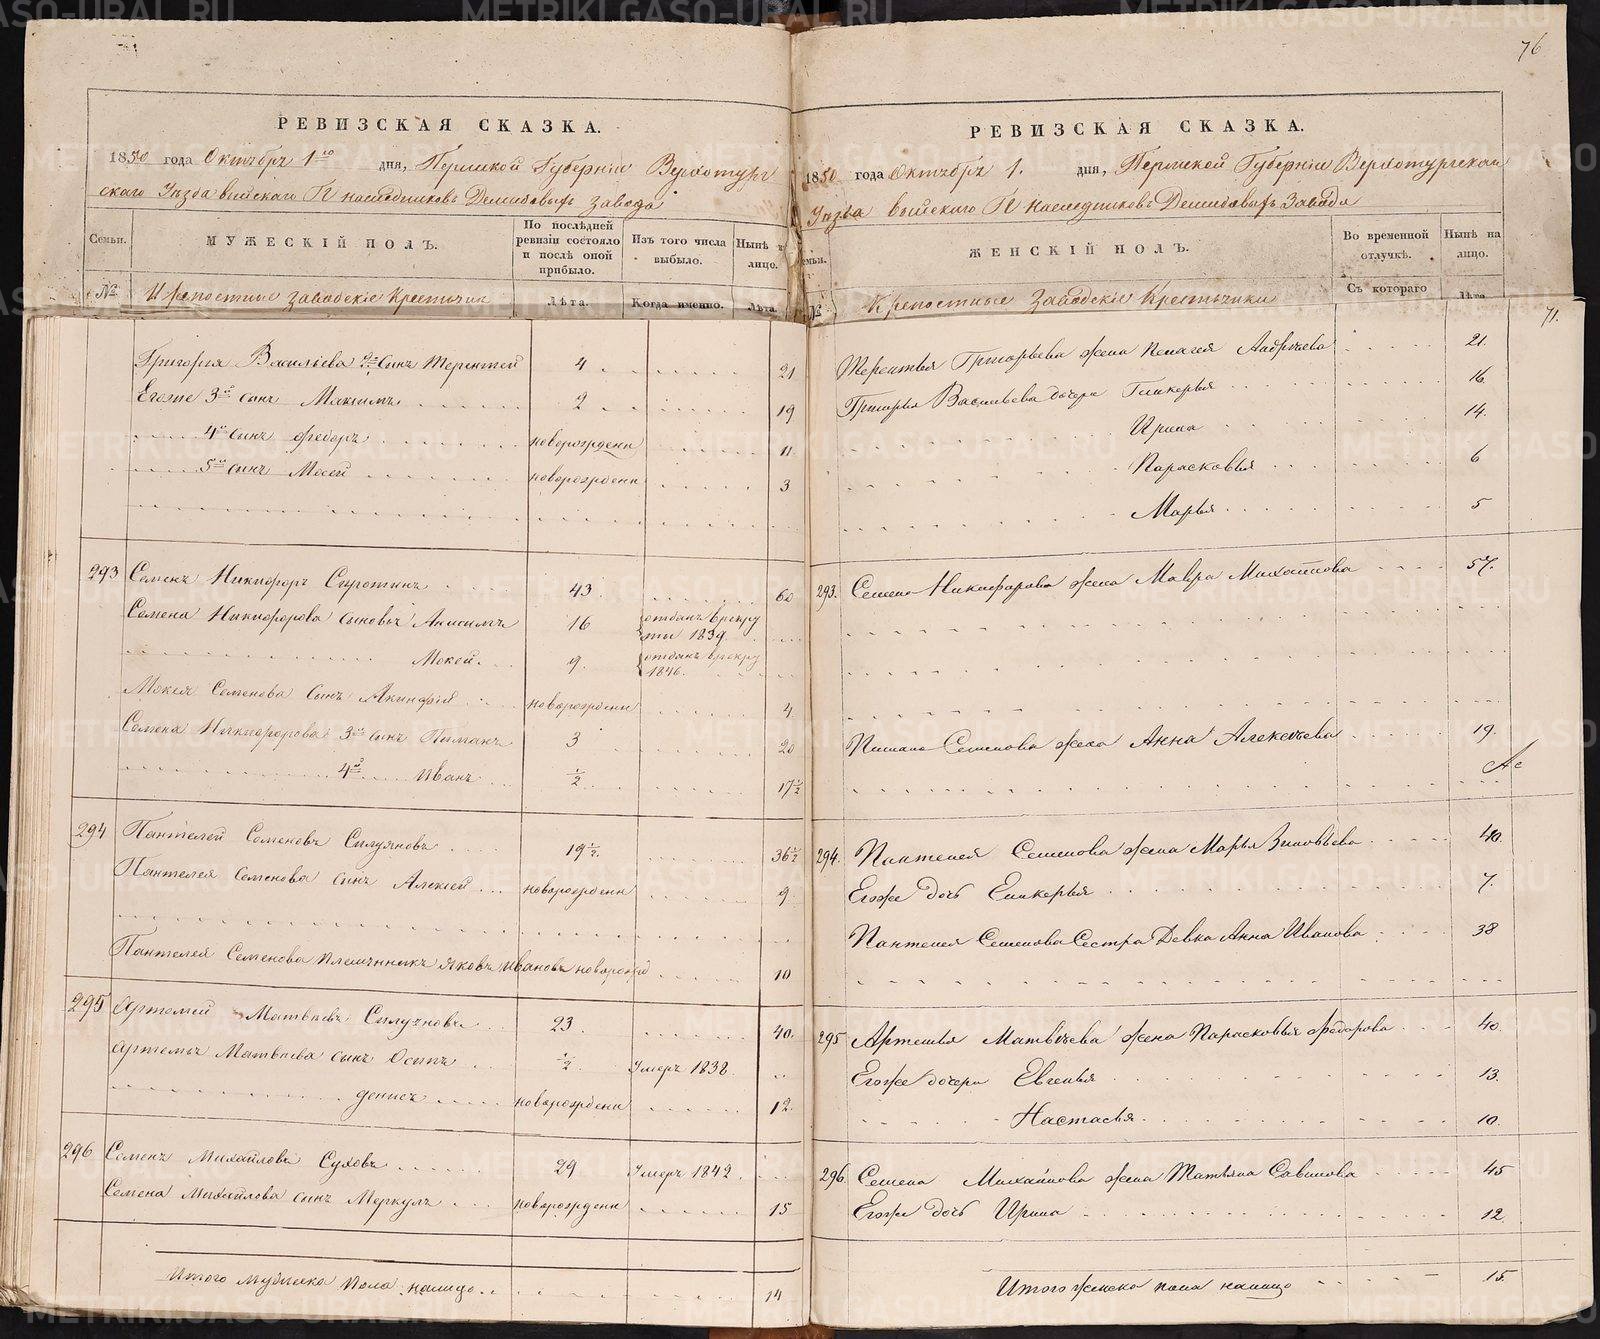 76
РЕВИЗСКАЯ СКАЗКА.
1850 года Октября 1го дня, Пермской Губернии Верхотур
скаго Уезда Выйскаго Г. наследниковъ Демидовыхъ завода
Семьи.
МУЖЕСКІЙ ПОЛЪ.
По последней ревизіи состояло и после оной прибыло.
Изъ того числа выбыло.
Ныне на лицо.
№
Крепостные заводскіе Крестьяне
Лета.
Когда именно.
Лета
Григорья Васильева 2й сынъ Терентей 4 21
Егоже 3й сынъ Максимъ 2 19
4й сынъ Федоръ новорожденн 11
5й сынъ Мосей новорожденн 3
293 Семенъ Никифоръ Сиротинъ 43 60
Семена Никифорова сыновья Анисимъ 16 отданъ врекруты 1839.
Мокей 9. отданъ врекру 1846.
Мокея Семенова сынъ Акинфій новорожденн 4
Семена Никифорова 3й сынъ Пиманъ 3 20
4й Иванъ ½ 17½
294 Пантелей Семеновъ Силуяновъ 19½. 36½
Пантелея Семенова сынъ Алексей новорожденн 9
Пантелея Семенова племянникъ Яковъ Ивановъ новорожд 10
295 Артемей Матвеевъ Силуяновъ 23. 40.
Артемья Матвеева сынъ Осипъ ½ Умеръ 1838
Денисъ новорожденн 12.
296 Семенъ Михайловъ Суховъ 29 Умеръ 1842.
Семена Михайлова сынъ Меркулъ новорожденн 15
Итого мужеска пола налицо 14
РЕВИЗСКАЯ СКАЗКА.
1850 года Октября 1. дня, Пермской Губерніи Верхотурскаго
Уезда Выйскаго Г. наследниковъ Демидовыхъ Завода
Семьи.
ЖЕНСКІЙ ПОЛЪ.
Во временной отлучкѣ.
Ныне на лицо.
№
Крепостные Заводскіе Крестьянки
Съ котораго
Лета
71.
Терентья Григорьева жена Пелагея Андреева 21.
Григорья Васильева дочери Гликерья 16.
Ирина 14.
Парасковья 6
Марья 5
293. Семена Никифорова жена Мавра Михайлова 57.
Пимана Семенова жена Анна Алексеева 19.
294. Пантелея Семенова жена Марья Зиновьева 40.
Егоже дочь Гликерья 7.
Пантелея Семенова Сестра Девка Анна Иванова 38
295 Артемья Матвеева жена Парасковья Федорова 40.
Егоже дочери Евгенья 13.
Настасья. 10.
296. Семена Михайлова жена Татьяна Савинова 45
Егоже дочь Ирина 12.
Итого женска пола налицо 15.
METRIKI.GASO-URAL.RU